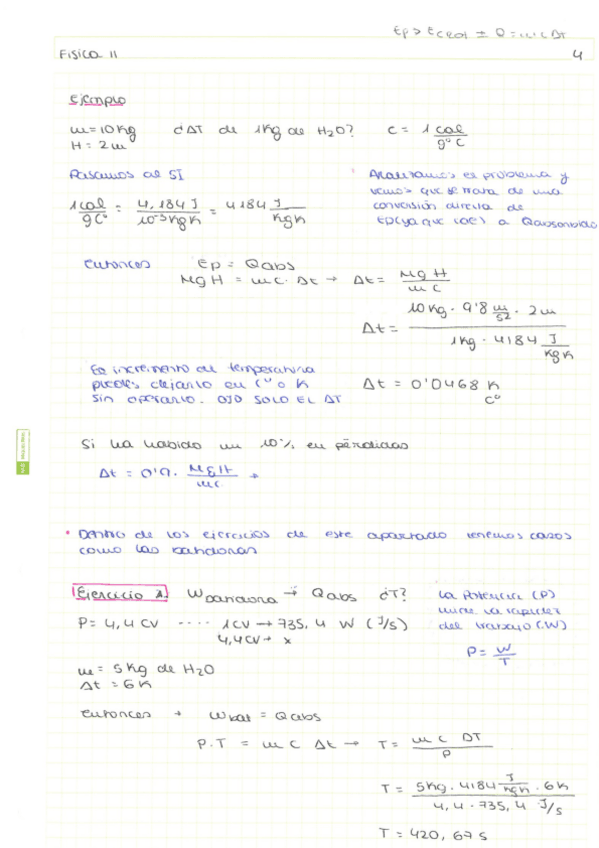 Ep > Ecalor ± Q = m c Δt
FISICA II 4
Ejemplo
m = 10 Kg ¿ΔT de 1Kg de H2O? C = 1 cal/gºC
H = 2m
Pasamos al SI
Analizamos el problema y
vemos que se trata de una
conversión directa de
Ep (ya que cae) a Qabsorbido
1 cal/gCº = 4,184 J/10-3 Kg K = 4184 J/KgK
Entonces Ep = Qabs
MgH = mc · Δt → Δt = MgH/mc
Δt = 10Kg · 9'8 m/s2 · 2m / 1Kg · 4184 J/KgK
El incremento de temperatura
puedes dejarlo en Cº o K
sin operarlo. OJO SOLO EL ΔT
Δt = 0'0468 K
Cº
Si ha habido un 10% en pérdidas
Δt = 0'9 · MgH/mc →
• Dentro de los ejercicios de este apartado tenemos casos
como las batidoras
Ejercicio 1. Wbatidora → Qabs ¿T?
La Potencia (P)
mide la rapidez
del trabajo (W)
P = W/T
P = 4,4 CV ···· 1CV → 735,4 W (J/s)
4,4CV → x
m = 5 Kg de H2O
Δt = 6K
Entonces → Wbat = Qabs
P·T = m c Δt → T = m c ΔT/P
T = 5Kg · 4184 J/KgK · 6K / 4,4 · 735,4 J/s
T = 420,67 s